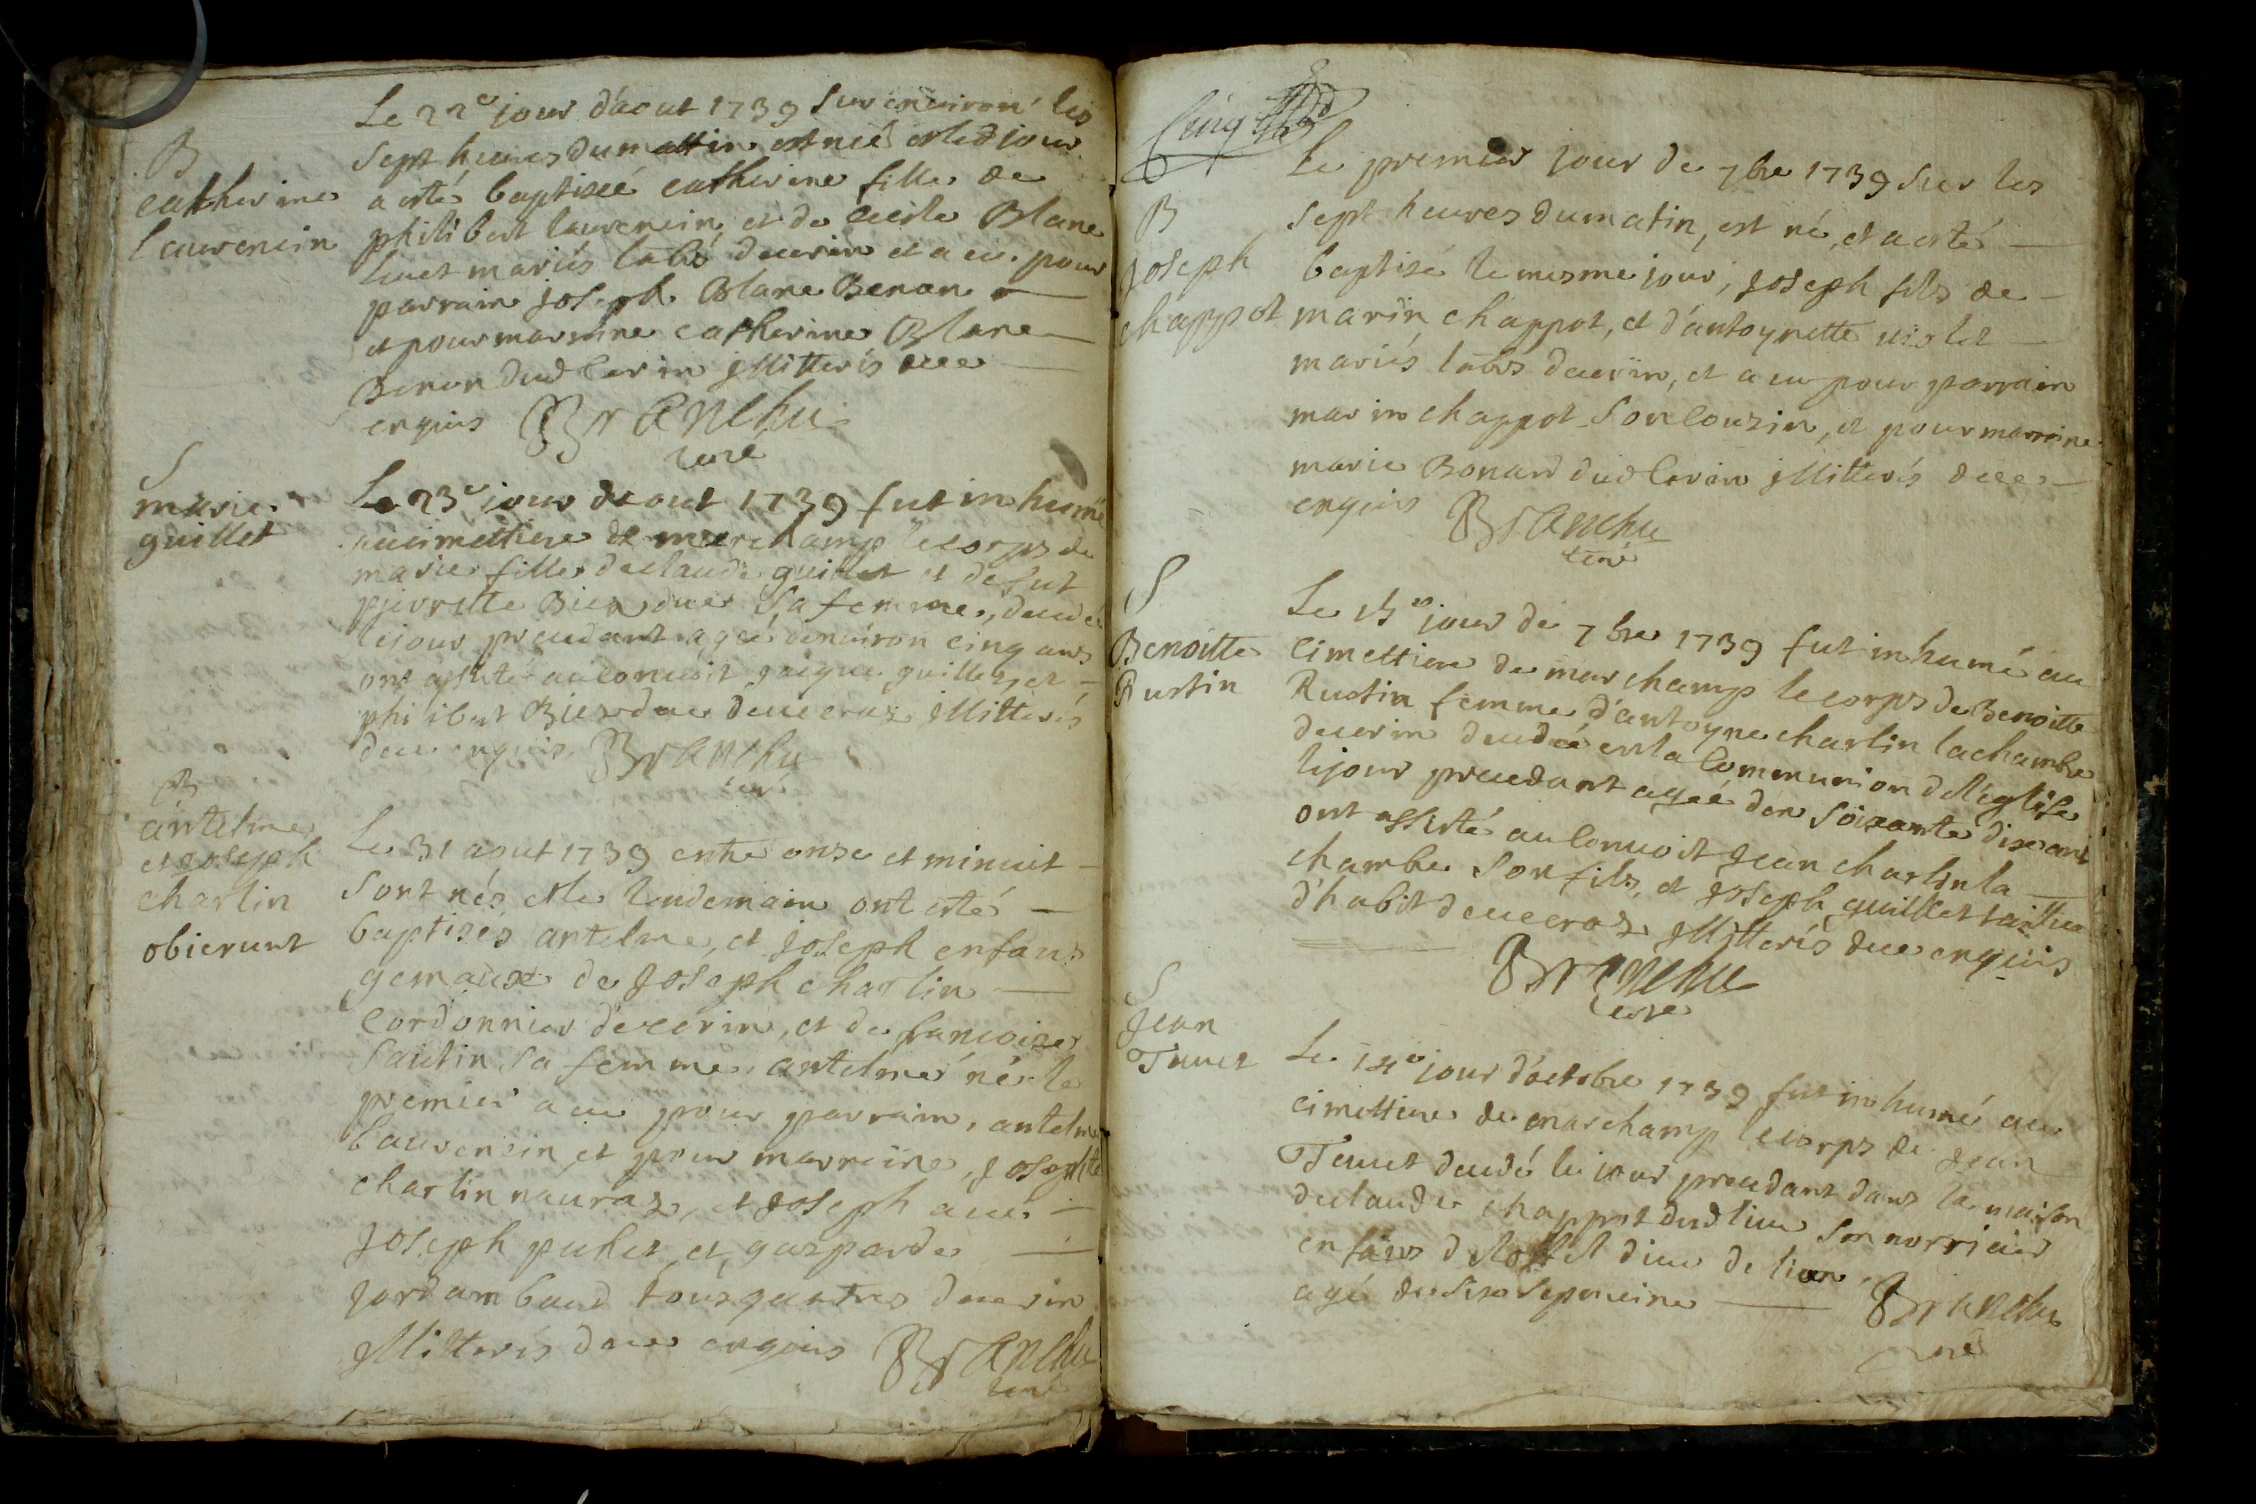 B
catherine
laurencin
Le 22e jour d'aout 1739 sur environ les
sept heures du mattin est neé et led jour
a esté baptiseé catherine fille de
philibert laurencin et de Cecile Blanc
luet mariés labs decerin et a eu pour
parrain Joseph Blanc Benon —
et pour marraine catherine Blanc —
Benon dud Cerin illitterés de ce —
enquis Branchu
curé
S
marie
guillet
Le 23e jour d'aout 1739 fut inhumé
au cimettiere de marchamp le corps de
marie fille de claude guillet et de fut
pierrette sa femme, decedé
le jour precedant ageé d'environ cinq ans
ont assisté au convoit jacque guillet, et —
philibert de ceceraz illitterés
de ce enquis Branchu
curé
B
antelme
et joseph
charlin
obierunt
Le 31 aout 1739 entre onze et minuit —
sont nés et le lendemain ont esté —
baptisés antelme, et joseph enfans
gemaux de Joseph charlin —
Cordonnier de cerin, et de francoise
sautin sa femme. antelme né le
premier a eu pour parrain, antelme
Laurencin et pour marraine, Josephte
charlin nauraz, et Joseph a eu —
Joseph puhet et gasparde —
Jordambaud tous quattres de cerin
illitterés de ce enquis Branchu
curé
Cinq
B
joseph
chappot
Le premier jour de 7bre 1739 sur les
sept heures du matin, est né, et a esté —
baptisé le mesme jour, joseph fils de —
marin chappot, et d'antoynette violet —
mariés labrs decerin, et a eu pour parrain
marin chappot son Couzin, et pour marraine
marie Bonard dud Cerin illitterés de ce —
enquis Branchu
curé
S
Benoitte
Rustin
Le 15e jour de 7bre 1739 fut inhumé au
Cimettiere de marchamp le corps de Benoitte
Rustin femme d'antoyne charlin lachambre
decerin decedeé en la Communion de l'eglise
le jour precedant ageé d'en soixante dix ans
ont assisté au Convoit Jean charlin la —
chambre son fils, et joseph guillet tailleur
d'habit de ceceraz illitterés de ce enquis
Branchu
curé
S
Jean
Tenet
Le 14e jour d'octobre 1739 fut inhumé au
cimettiere de marchamp le corps de Jean
Tenet decedé le jour precedant dans la maison
de claude chappot dud lieu son norricier
enfans de l'ostel dieu de lion,
agé de six sepmeine — Branchu
curé